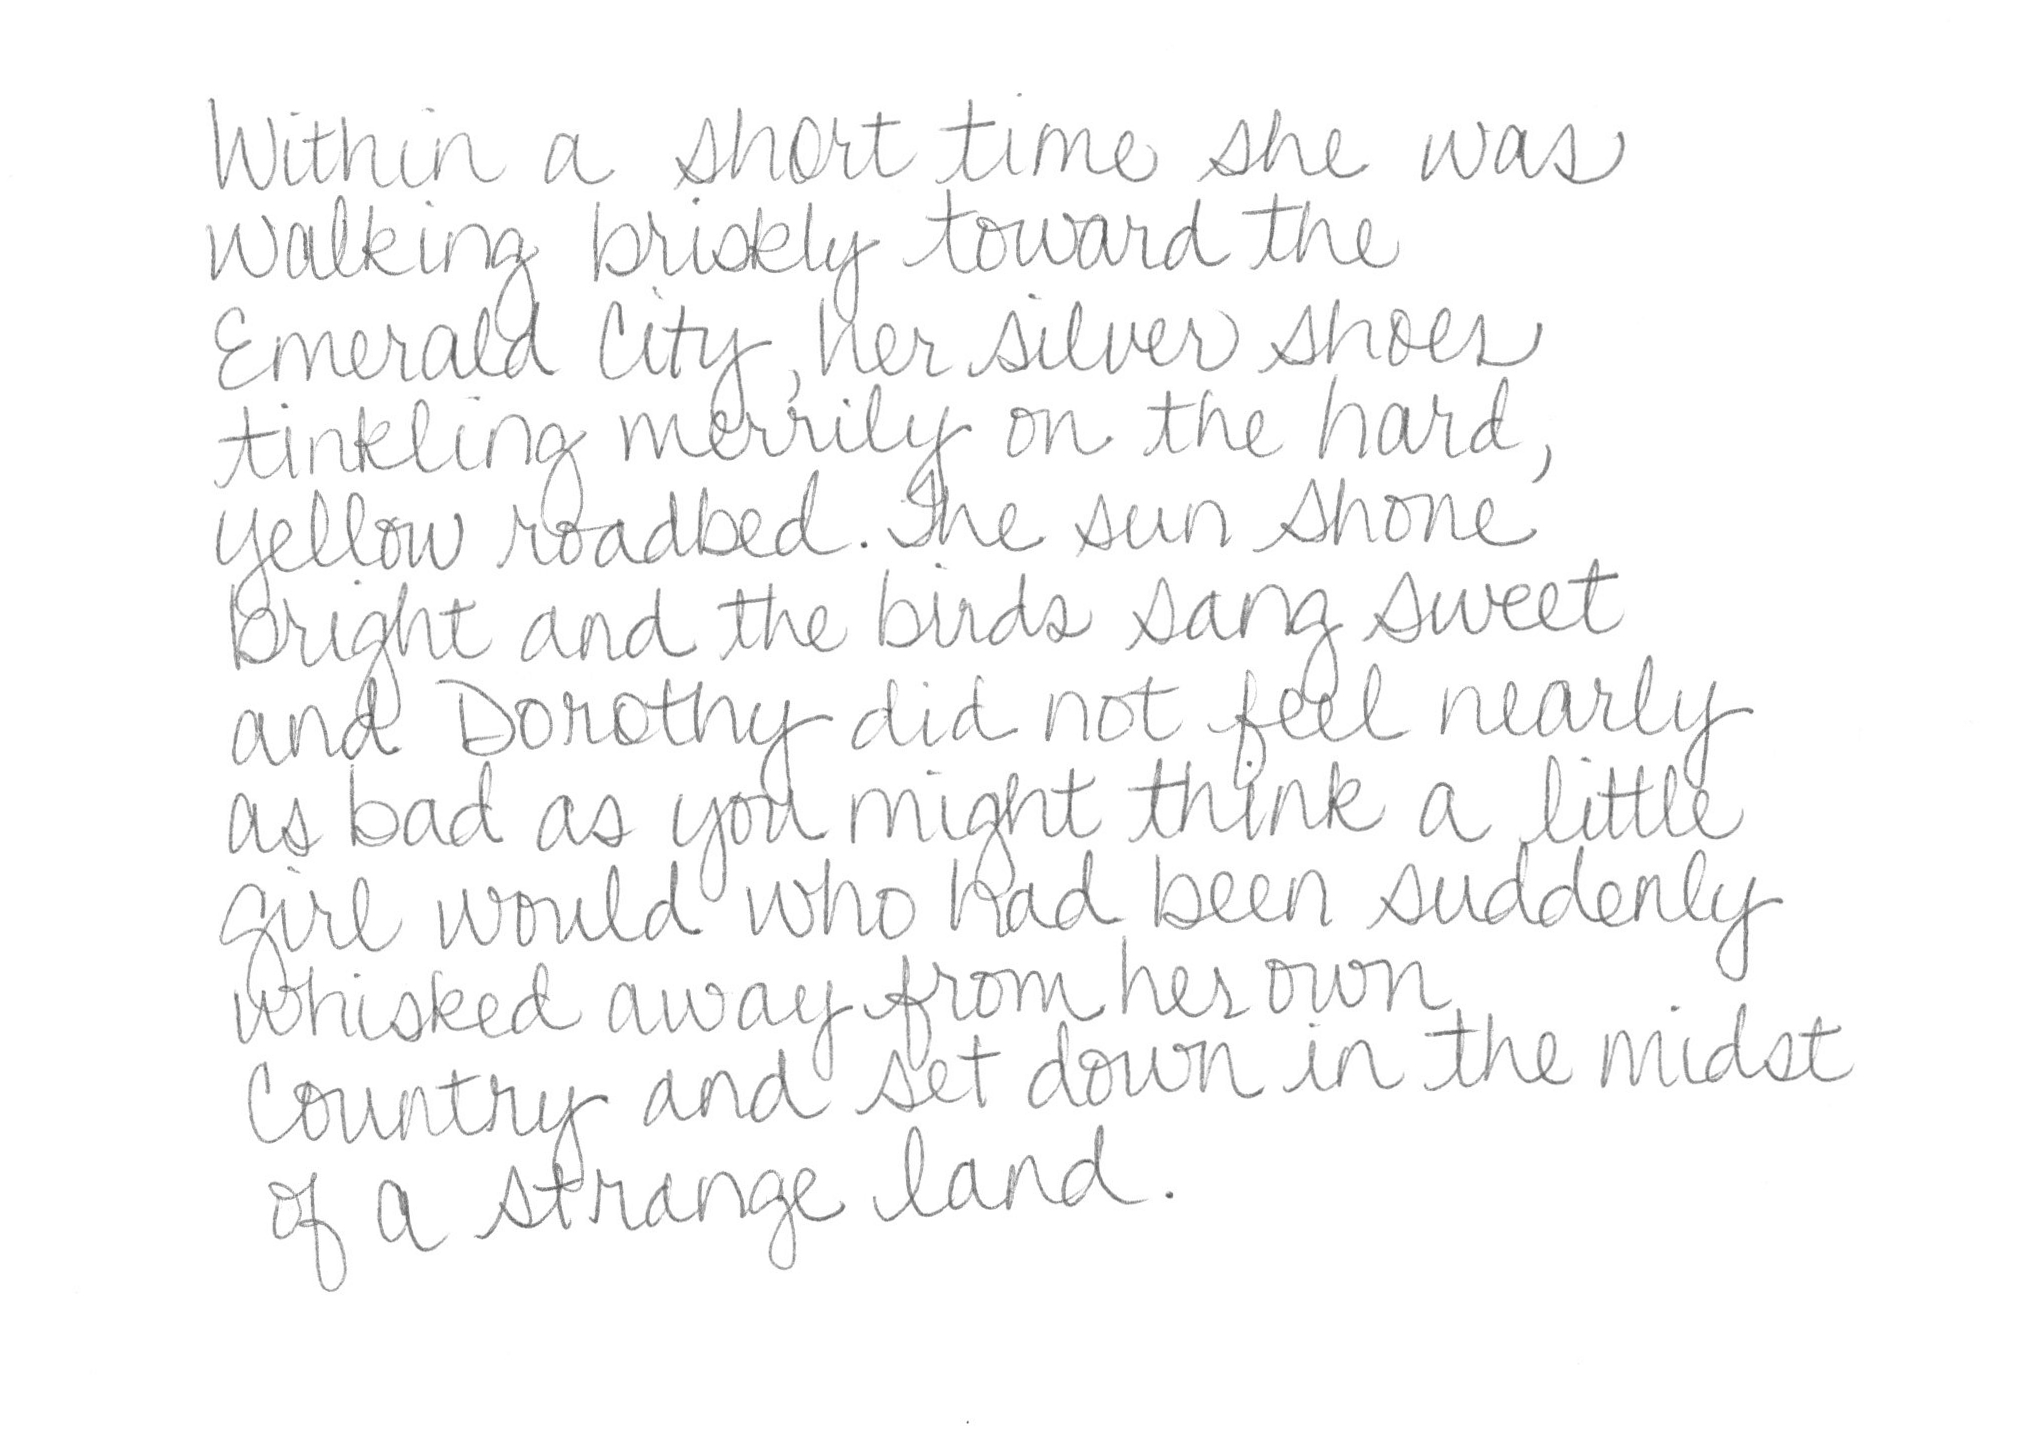 Within a short time she was
walking briskly toward the
Emerald City, her silver shoes
tinkling merrily on the hard,
yellow roadbed. The sun shone
bright and the birds sang sweet
and Dorothy did not feel nearly
as bad as you might think a little
girl would who had been suddenly
whisked away from her own
country and set down in the midst
of a strange land.